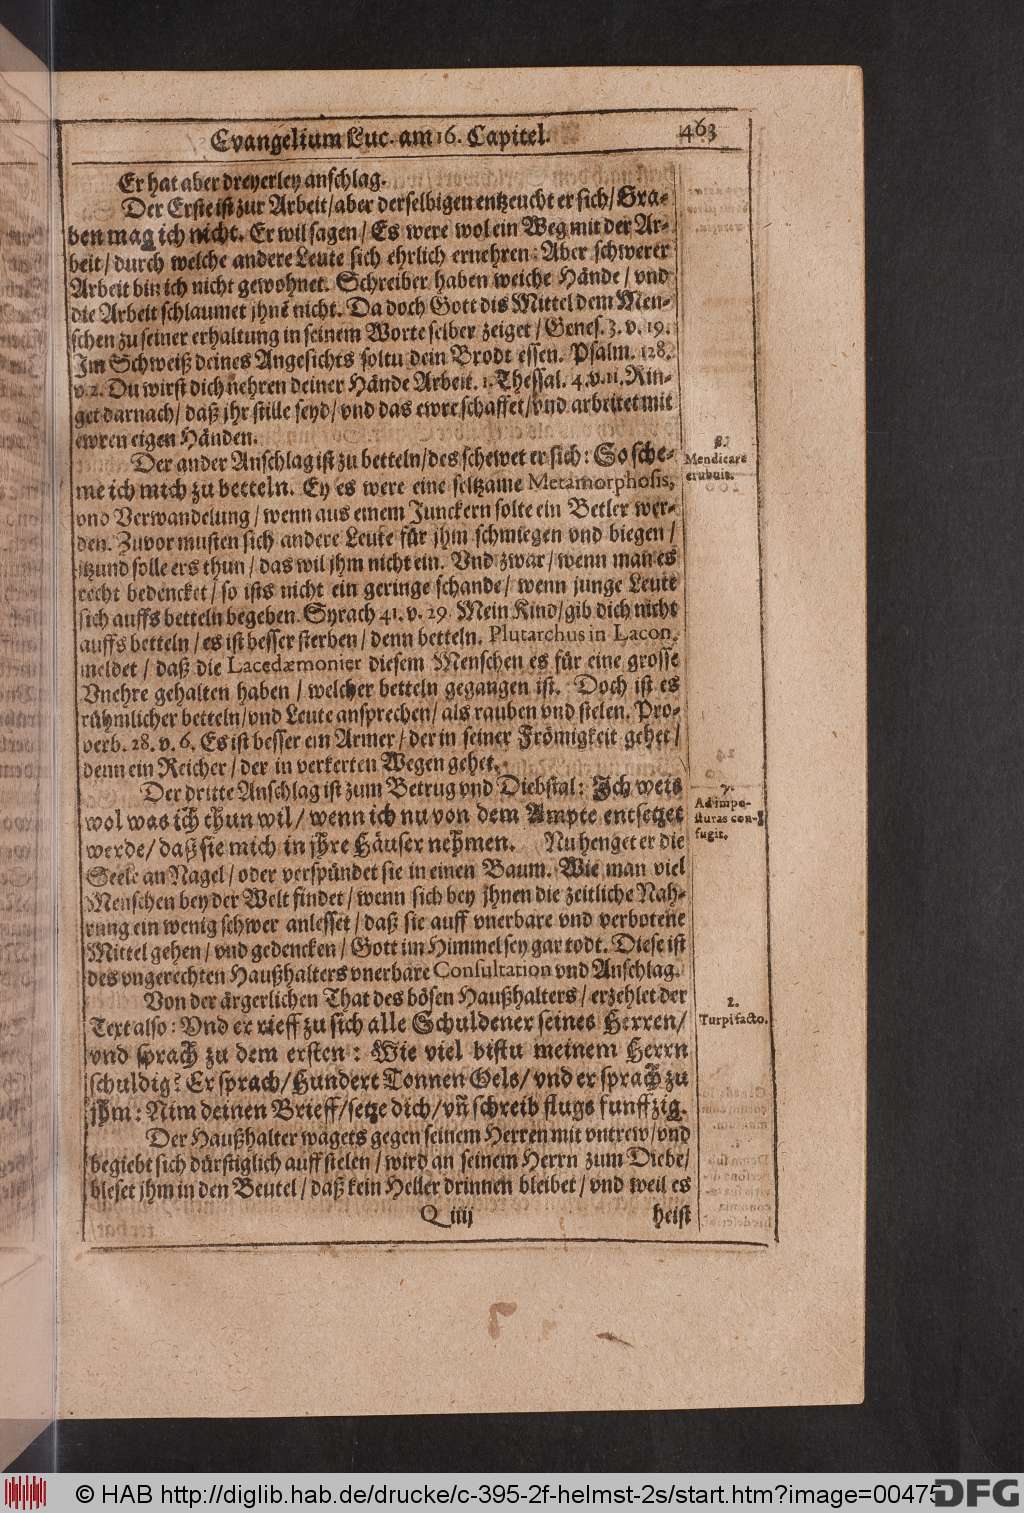 Evangelium Luc. am 16. Capitel.
463
Er hat aber dreyerley anschlag.
Der Erste ist zur Arbeit / aber derselbigen entzeucht er sich / Gra-
ben mag ich nicht. Er wil sagen / Es were wol ein Weg mit der Ar-
beit / durch welche andere Leute sich ehrlich ernehren: Aber schwerer
Arbeit bin ich nicht gewohnet. Schreiber haben weiche Hände / vnd
die Arbeit schlaumet jhnē nicht. Da doch Gott dis Mittel dem Men-
schen zu seiner erhaltung in seinem Worte selber zeiget / Genes. 3. v. 19.
Im Schweiß deines Angesichts soltu dein Brodt essen. Psalm. 128.
v. 2. Du wirst dich nehren deiner Hände Arbeit. 1. Thessal. 4. v. 11. Rin-
get darnach / daß jhr stille seyd / vnd das ewre schaffet / vnd arbeitet mit
ewren eigen Händen.
Der ander Anschlag ist zu betteln / des schewet er sich: So sche-
me ich mich zu betteln. Ey es were eine seltzame Metamorphosis,
vnd Verwandelung / wenn aus einem Junckern solte ein Betler wer-
den. Zuvor musten sich andere Leute für jhm schmiegen vnd biegen /
jtzund solle ers thun / das wil jhm nicht ein. Vnd zwar / wenn man es
recht bedencket / so ists nicht ein geringe schande / wenn junge Leute
sich auffs betteln begeben. Syrach 41. v. 29. Mein Kind / gib dich nicht
auffs betteln / es ist besser sterben / denn betteln. Plutarchus in Lacon.
meldet / daß die Lacedæmonier diesem Menschen es für eine grosse
Vnehre gehalten haben / welcher betteln gegangen ist. Doch ist es
rühmlicher betteln / vnd Leute ansprechen / als rauben vnd stelen. Pro-
verb. 28. v. 6. Es ist besser ein Armer / der in seiner Frömigkeit gehet /
denn ein Reicher / der in verkerten Wegen gehet.
Der dritte Anschlag ist zum Betrug vnd Diebstal: Ich weis
wol was ich thun wil / wenn ich nu von dem Ampte entsetzet
werde / daß sie mich in jhre Häuser nehmen. Nu henget er die
Seele an Nagel / oder verspündet sie in einen Baum. Wie man viel
Menschen bey der Welt findet / wenn sich bey jhnen die zeitliche Nah-
rung ein wenig schwer anlesset / daß sie auff vnerbare vnd verbotene
Mittel gehen / vnd gedencken / Gott im Himmel sey gar todt. Diese ist
des vngerechten Haußhalters vnerbare Consultation vnd Anschlag.
Von der ärgerlichen That des bösen Haußhalters / erzehlet der
Text also: Vnd er rieff zu sich alle Schuldener seines Herren /
vnd sprach zu dem ersten: Wie viel bistu meinem Herrn
schuldig? Er sprach / Hundert Tonnen Oels / vnd er sprach zu
jhm: Nim deinen Brieff / setze dich / vñ schreib flugs funffzig.
Der Haußhalter wagets gegen seinem Herren mit vntrew / vnd
begiebt sich dürstiglich auff stelen / wird an seinem Herrn zum Diebe /
bleset jhm in den Beutel / daß kein Heller drinnen bleibet / vnd weil es
Q iiij
heist
Mendicare
erubuit.
7.
Ad impo-
sturas con-
fugit.
2.
Turpi facto.
© HAB http://diglib.hab.de/drucke/c-395-2f-helmst-2s/start.htm?image=00475
DFG